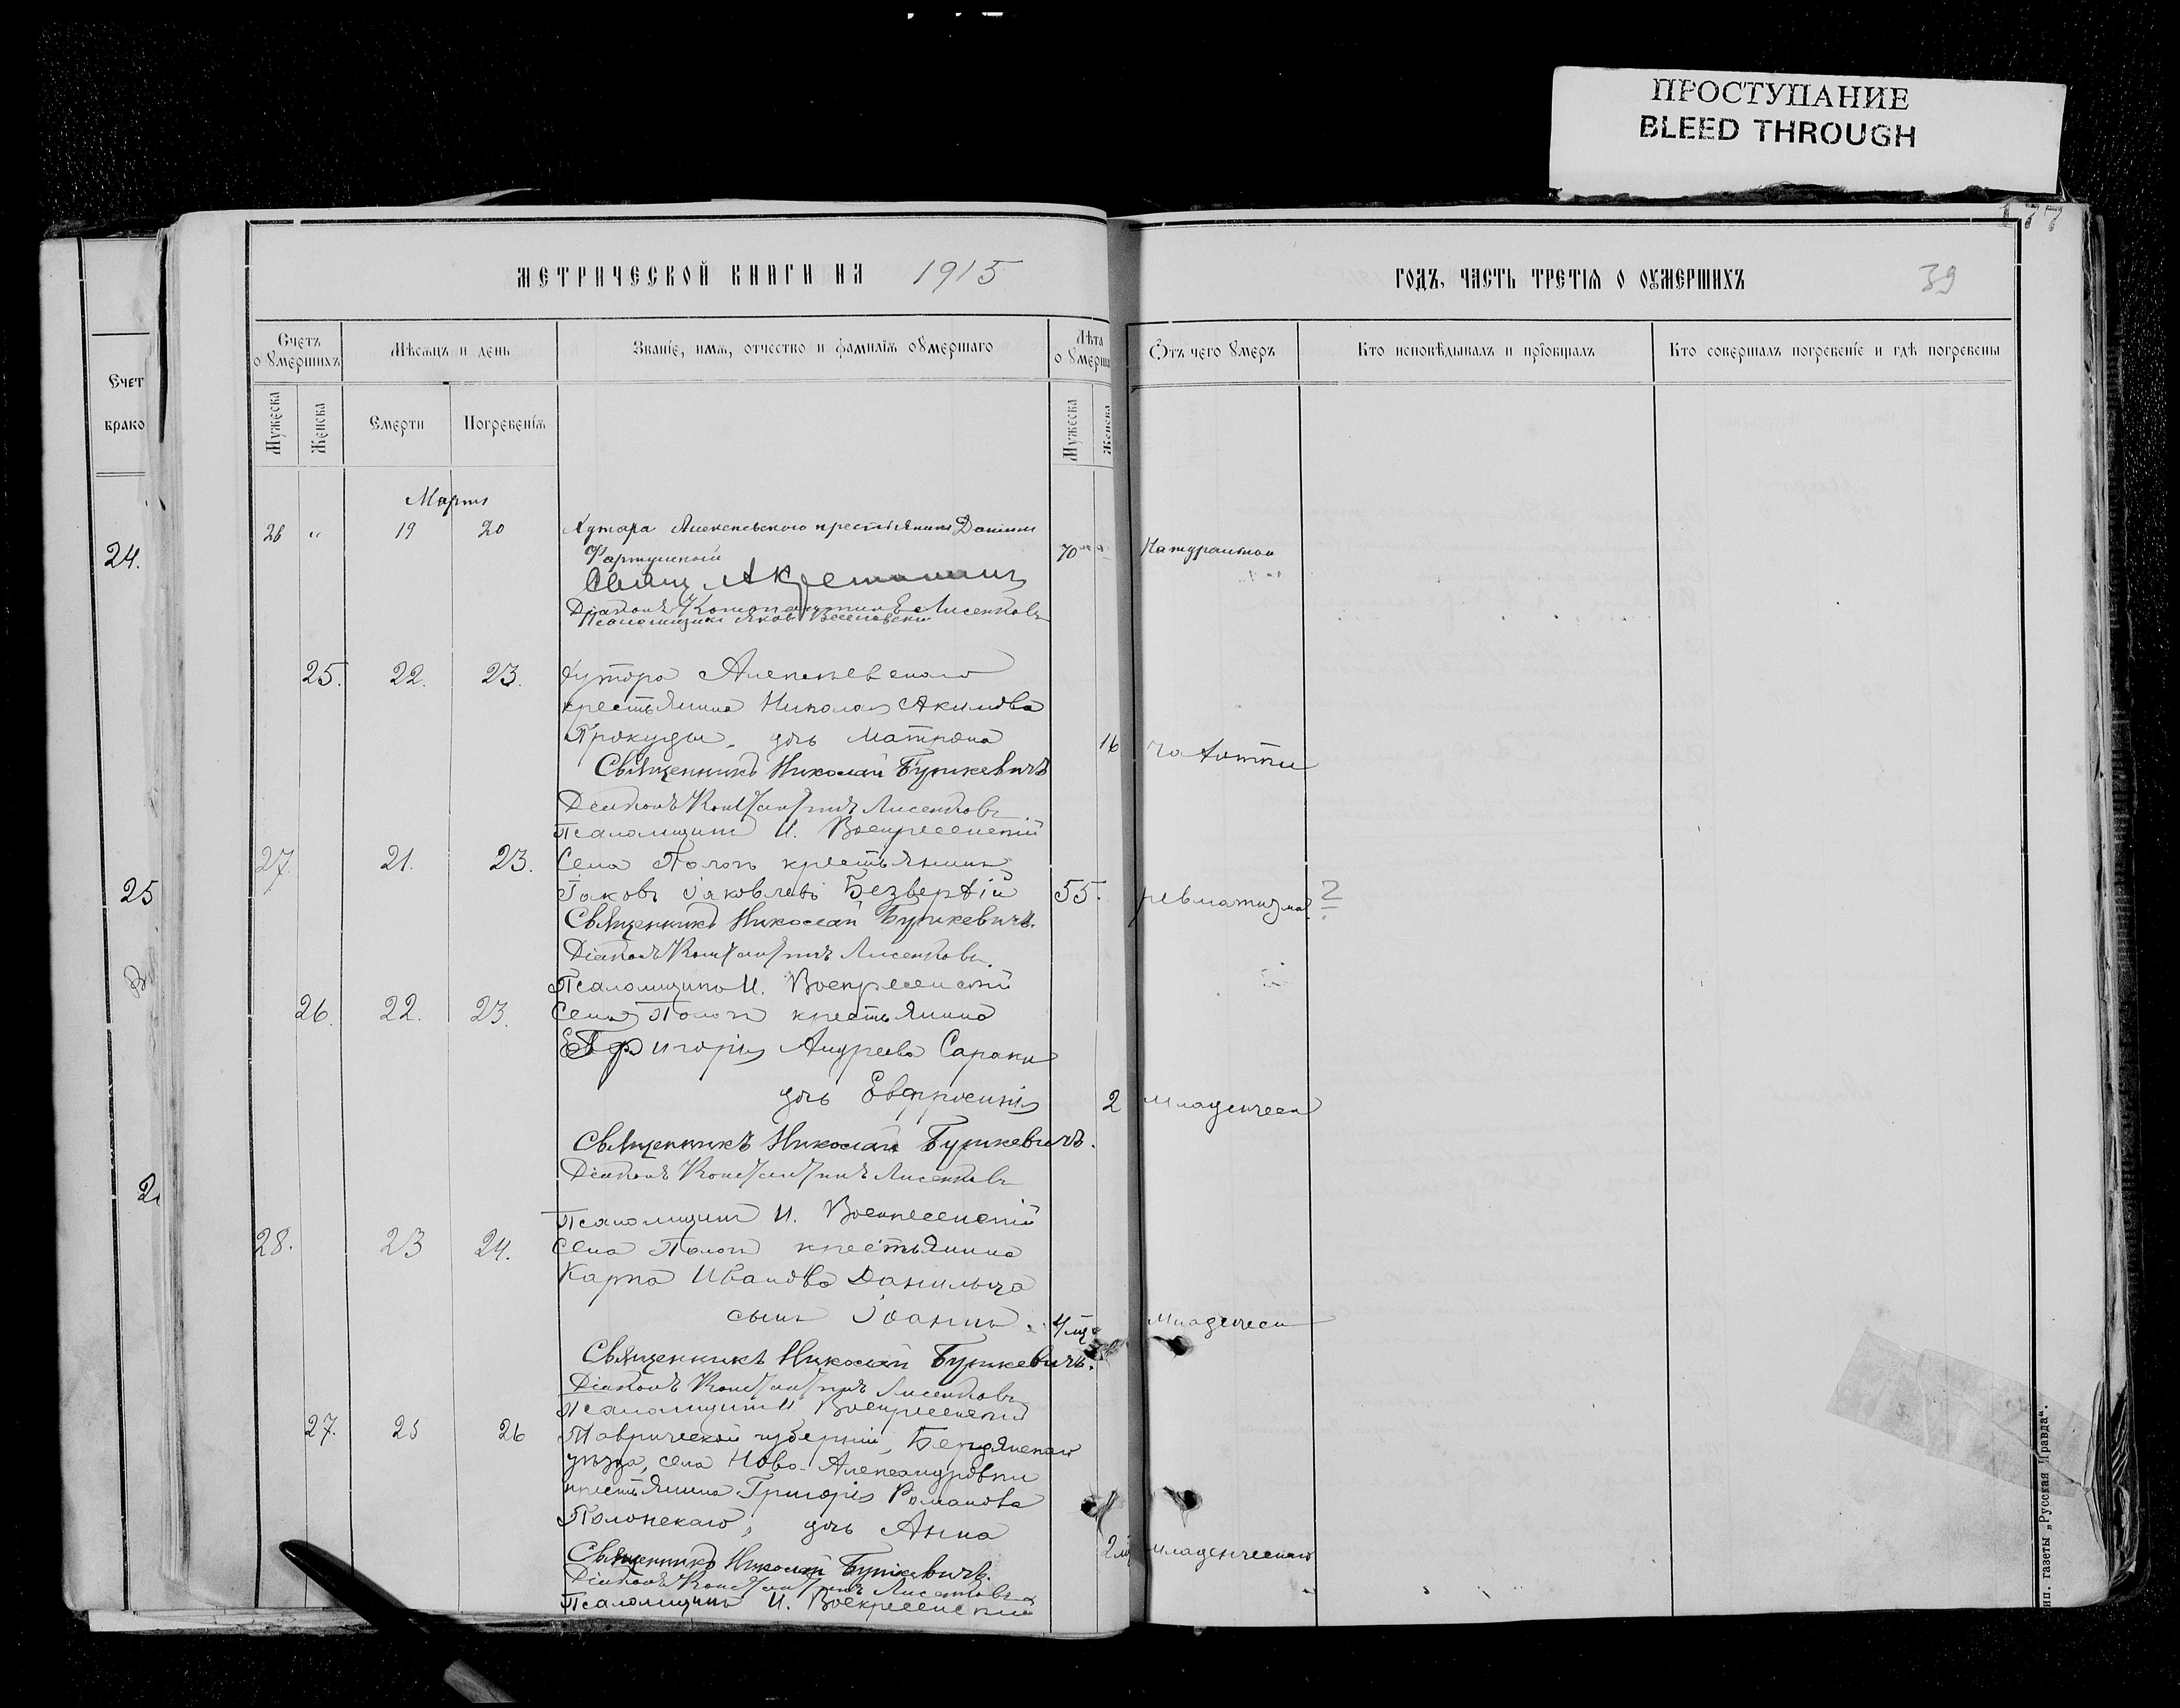 ПРОСТУПАНИЕ
BLEED THROUGH
177
МЕТРИЧЕСКОЙ КНИГИ НА 1915
ГОДЪ, ЧАСТЬ ТРЕТІЯ О ОУМЕРШИХЪ
39
Счетъ
оумершихъ
Мѣсяцъ и день
Званіе, имя, отчество и фамилія оумершаго
Лѣта
оумерша
Отъ чего умеръ
Кто исповѣдывалъ и пріобщалъ
Кто совершалъ погребеніе и гдѣ погребены
Мужеска
Женска
Смерти
Погребенія
Мужеска
Женска
Счет
брако
24.
25
Мартъ
26 " 19 20 Хутора Алексѣевского крестьянинъ Даниил
70
Діаконъ Константинъ Лисенковъ
Псаломщикъ Яковъ
25. 22. 23. Хутора Алексѣевскаго
крестьянина Николая Акимова
Прокуды, дочь Матрона 16 чахотки
Священникъ Николай Бушкевичъ
Діаконъ Константинъ Лисенковъ
Псаломщикъ И. Воскресенскій
27 21. 23. Села Пологъ крестьянинъ
Іаковъ Іаковлевъ Безверхій 55. ревматизма ?
Священникъ Николай Бушкевичъ.
Діаконъ Константинъ Лисенковъ
Псаломщикъ И. Воскресенскій
26. 22. 23. Села Пологъ крестьянина
Григорія Андреева Сараки
дочь Евфросинія 2 младенческ
Священникъ Николай Бушкевичъ.
Діаконъ Константинъ Лисенковъ
Псаломщикъ И. Воскресенскій
28. 23 24. Села Пологъ крестьянина
Карпа Иванова Данильча
сынъ Іоаннъ. 4 мц. младенческ
Священникъ Николай Бушкевичъ.
Діаконъ Константинъ Лисенковъ
Псаломщикъ И. Воскресенскій
27. 25 26 Таврической губерніи, Бердянскаго
уѣзда, села Ново-Александровки
крестьянина Григорія Романова
Полонскаго, дочь Анна
2 м младенческаго
Священникъ Николай Бушкевичъ.
Діаконъ Константинъ Лисенковъ
Псаломщикъ И. Воскресенскій
ип. газеты „Русская Правда“.